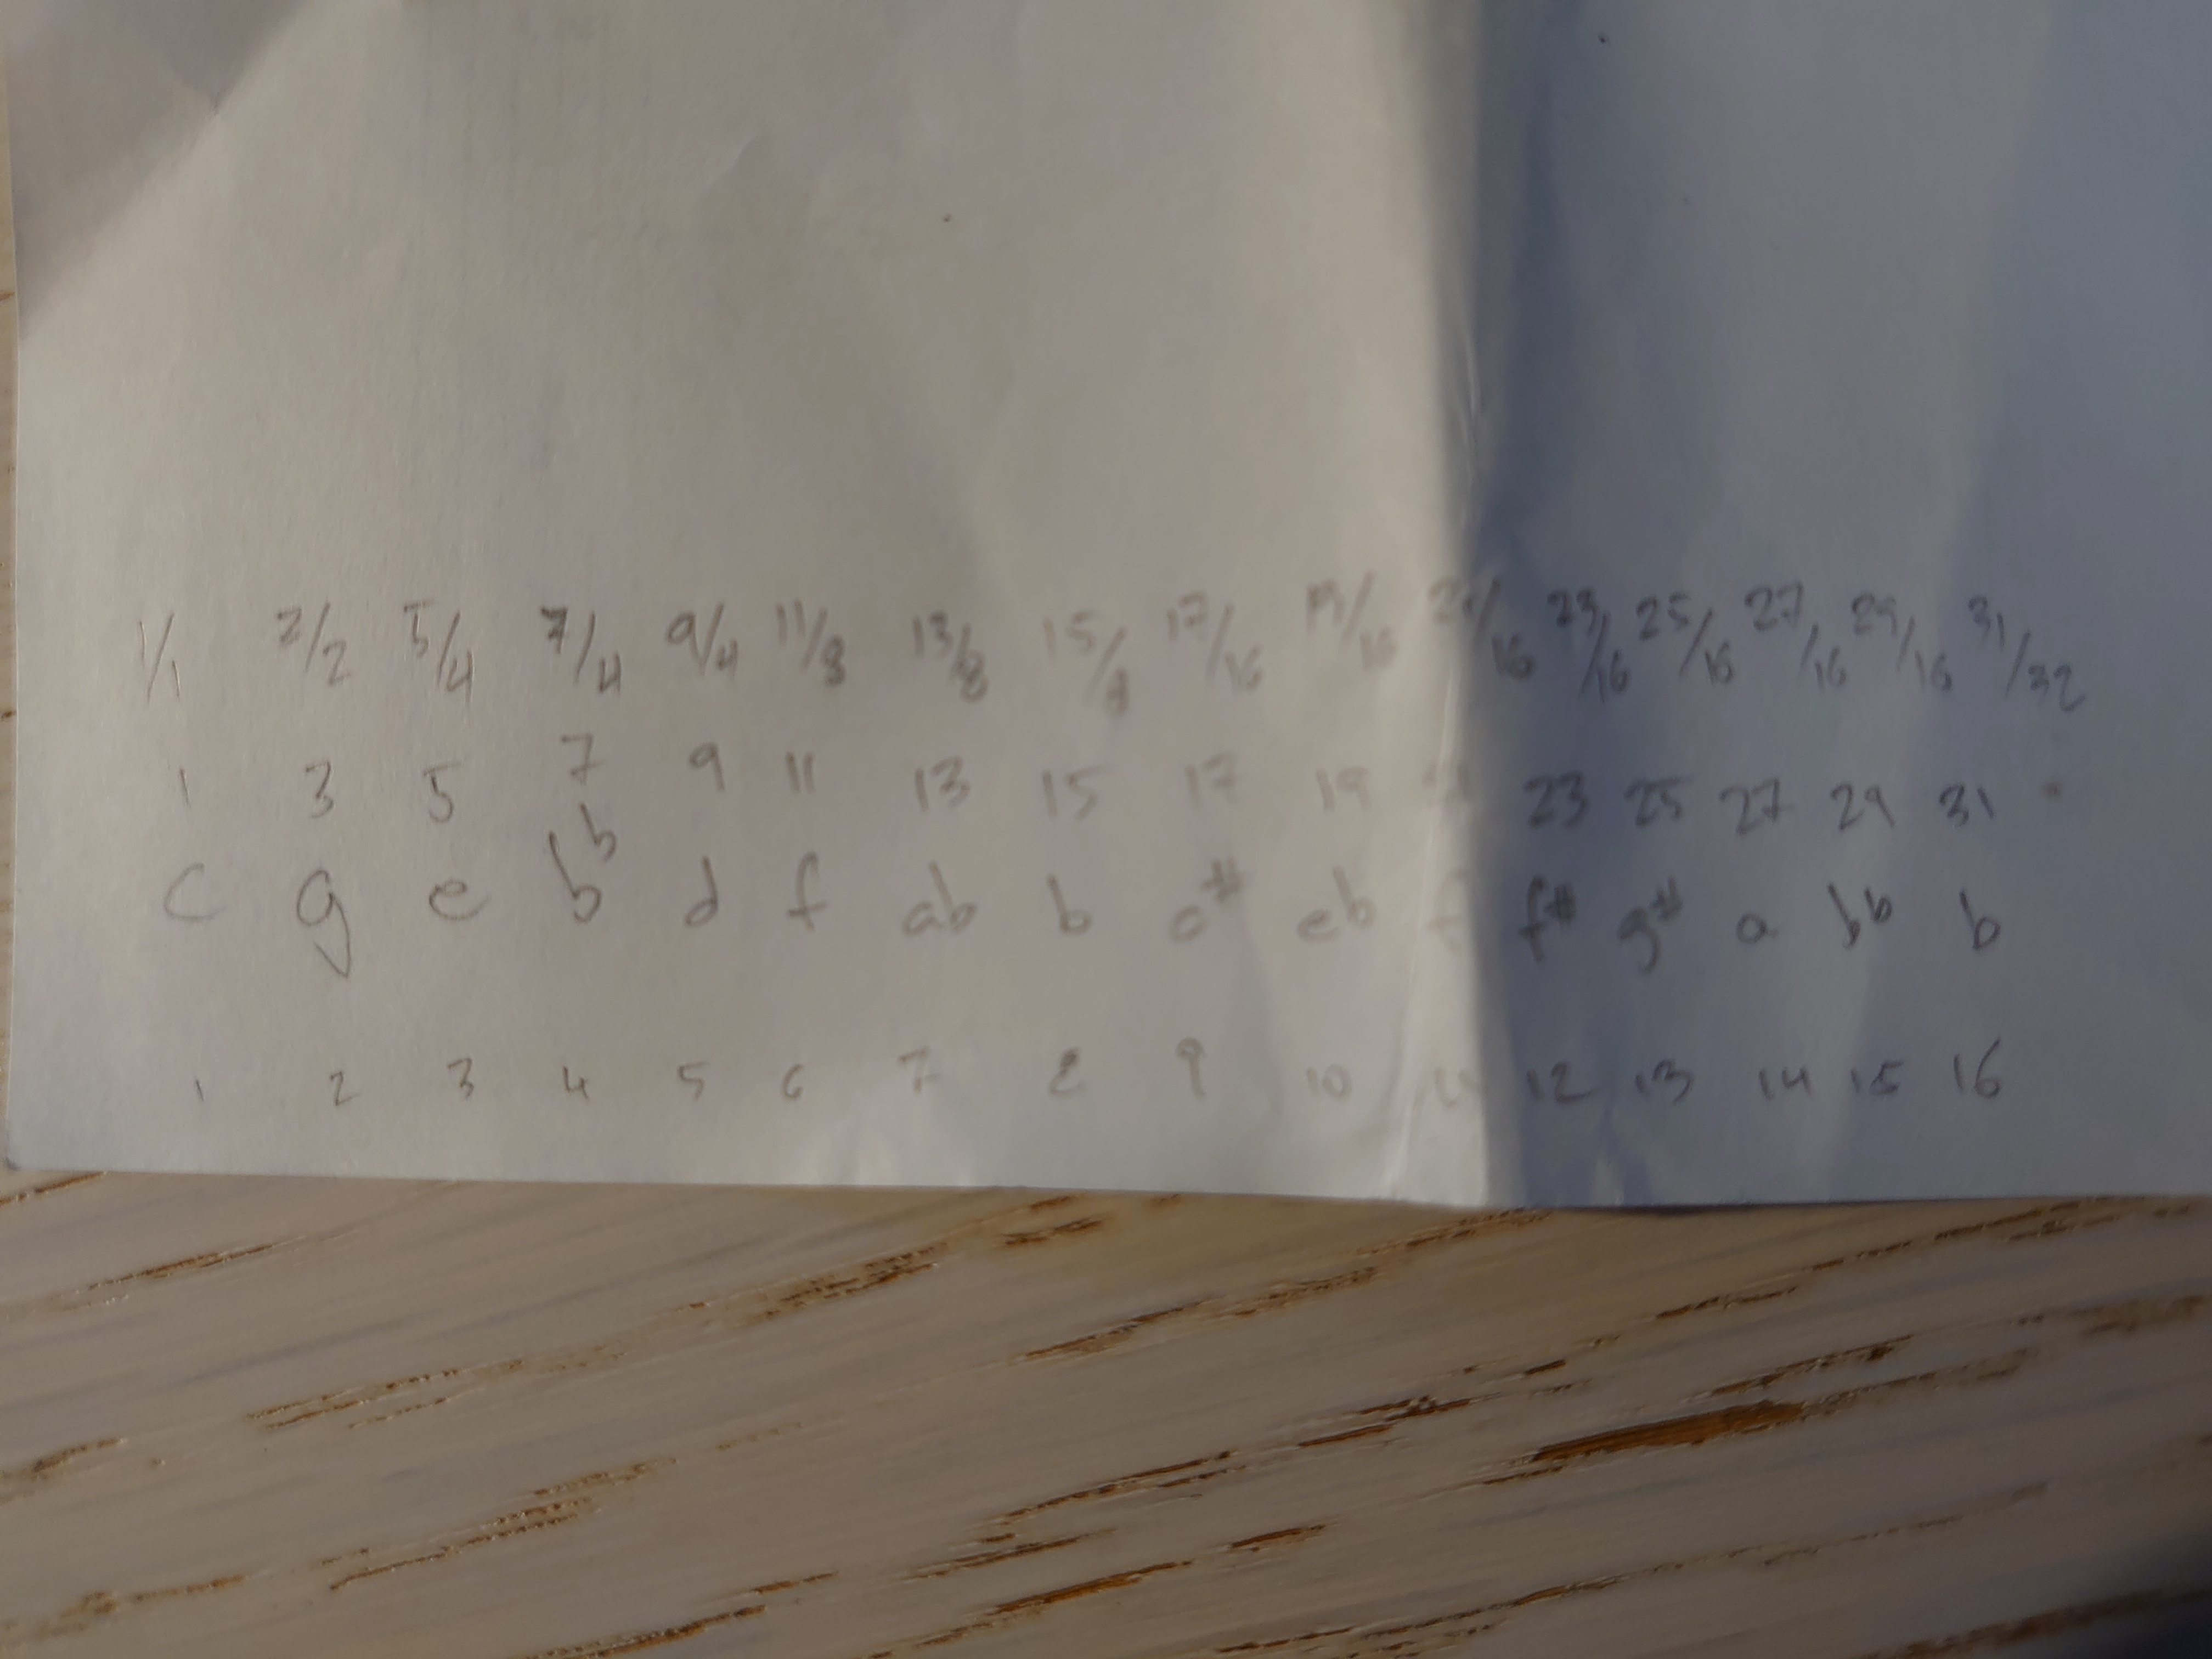 1/1 2/2 5/4 7/4 9/4 11/8 13/8 15/8 17/16 19/16 21/16 23/16 25/16 27/16 29/16 31/32
1 3 5 7 9 11 13 15 17 19 21 23 25 27 29 31
c g e bb d f ab b c# eb f f# g# a bb b
1 2 3 4 5 6 7 8 9 10 11 12 13 14 15 16